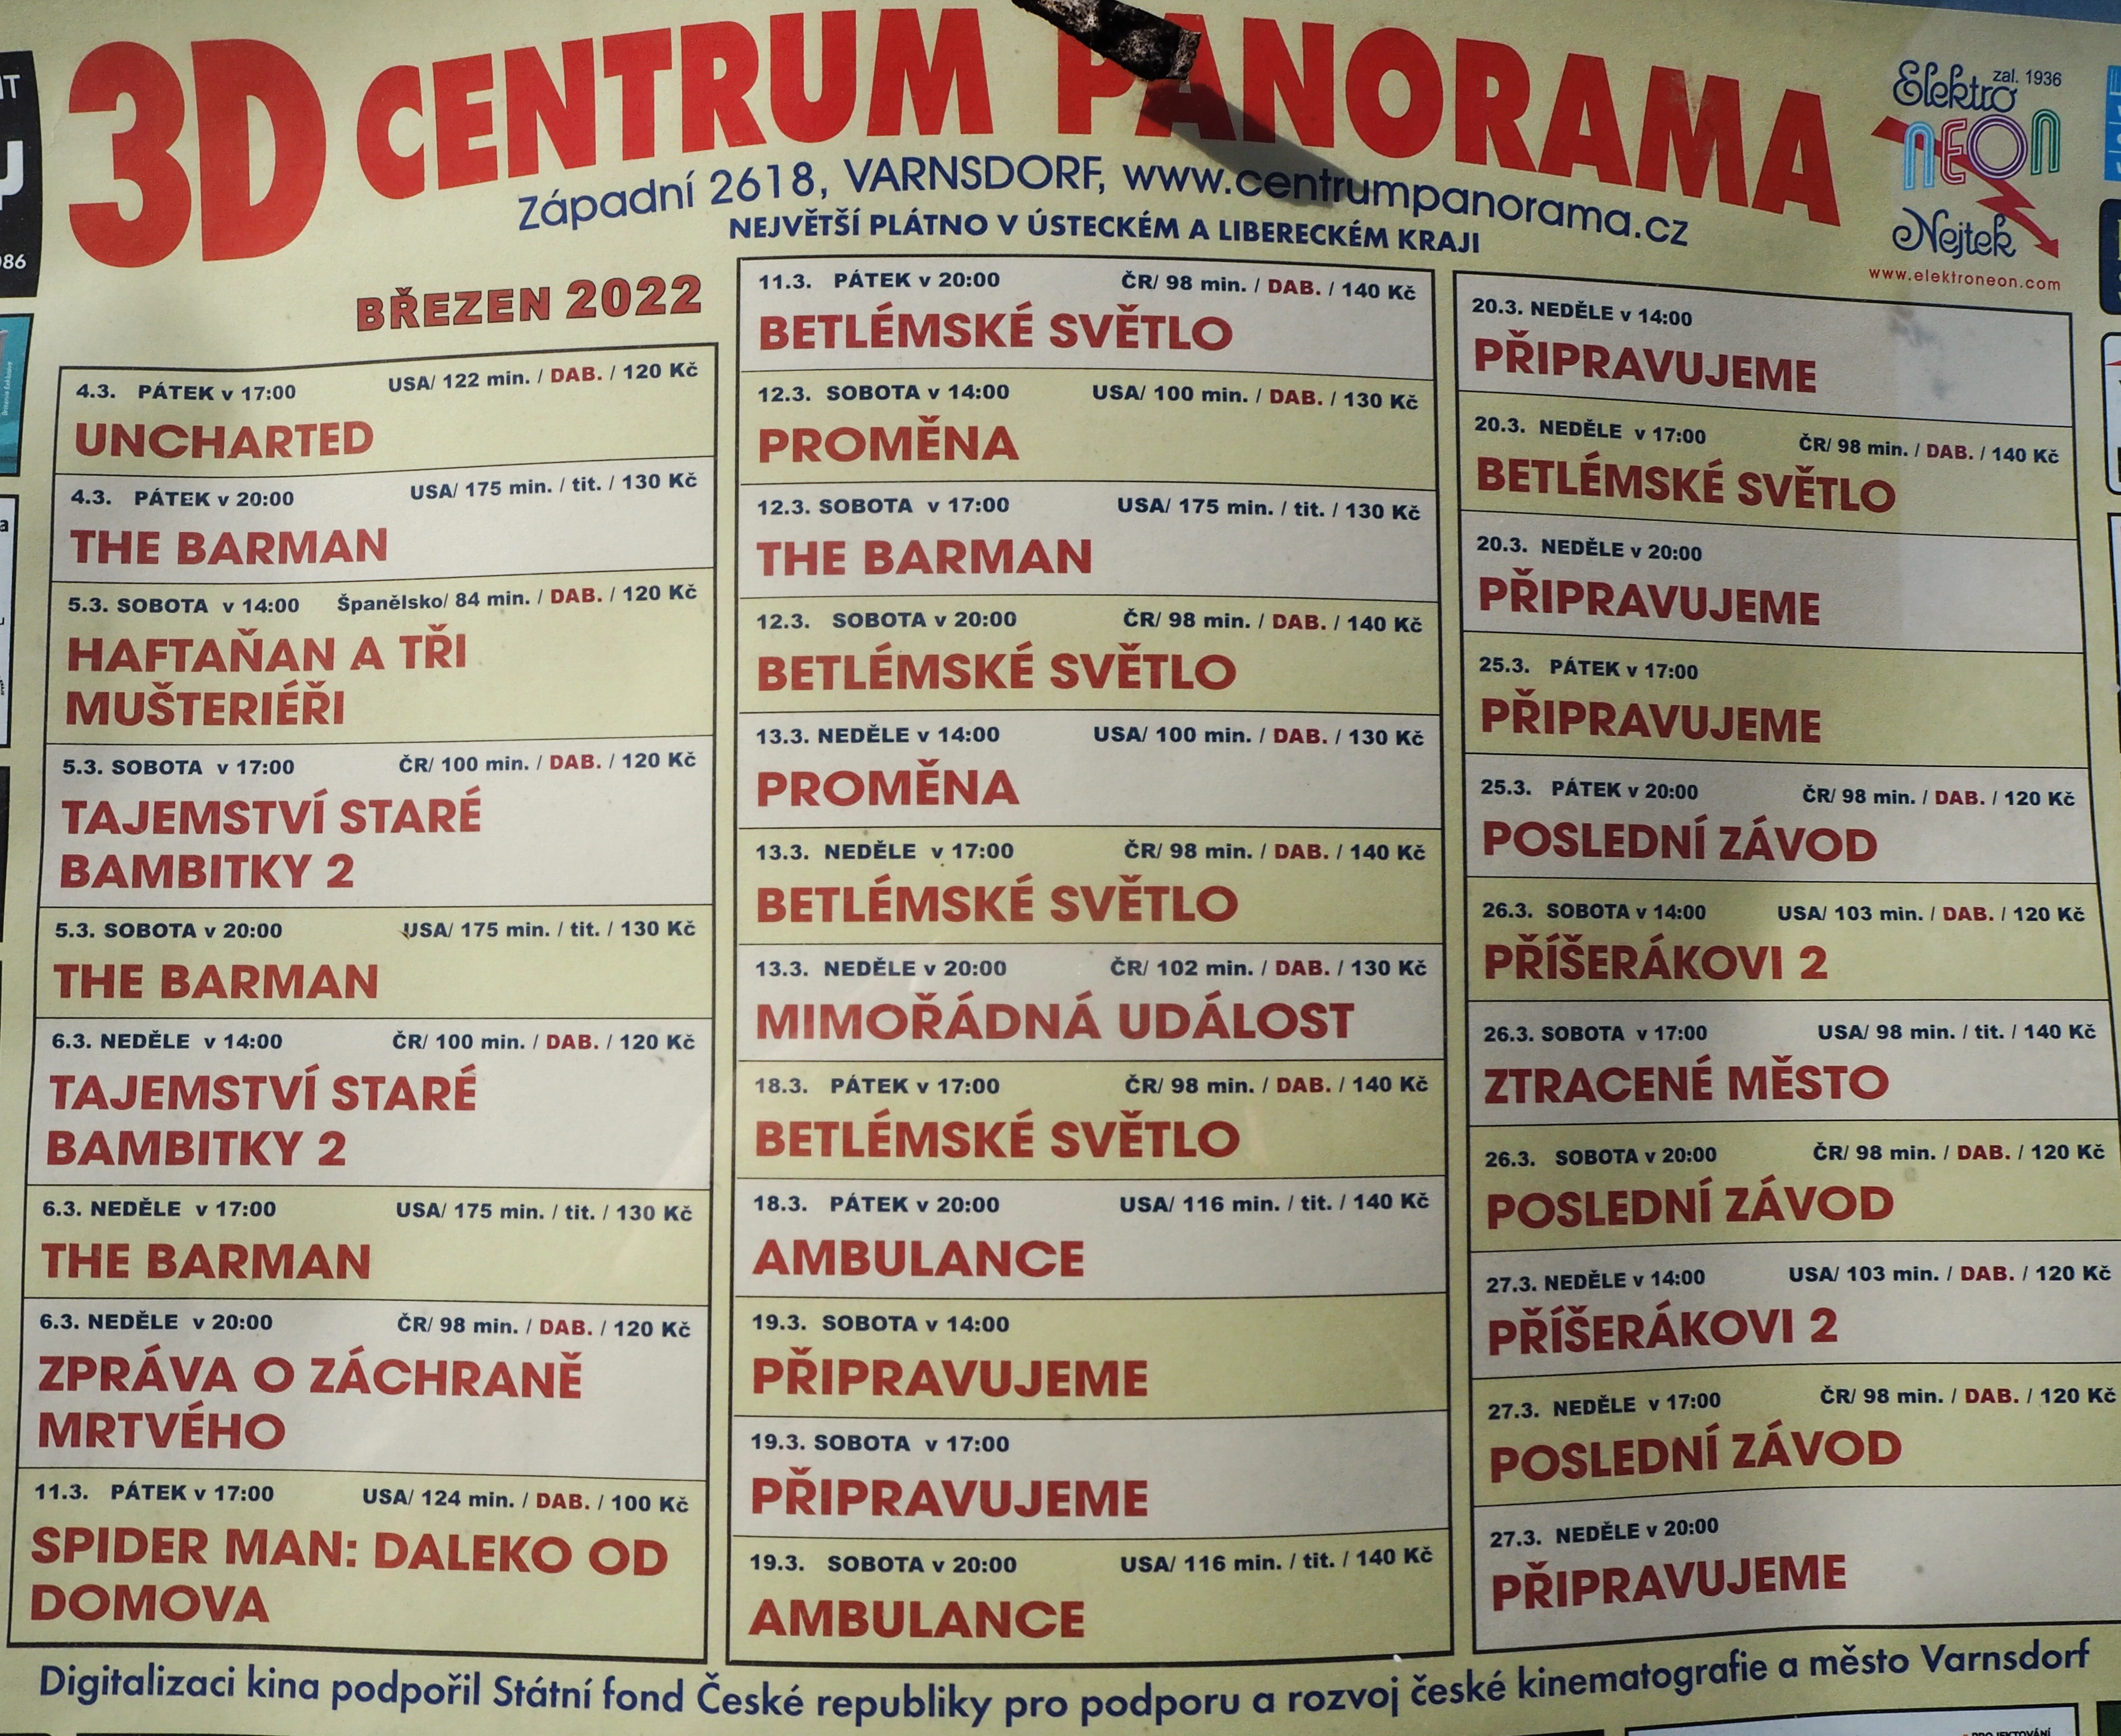 3D CENTRUM PANORAMA
Západní 2618, VARNSDORF, www.centrumpanorama.cz
NEJVĚTŠÍ PLÁTNO V ÚSTECKÉM A LIBERECKÉM KRAJI
Elektro zal. 1936
NEON
Nejtek
www.elektroneon.com
BŘEZEN 2022
4.3. PÁTEK v 17:00 USA/ 122 min. / DAB. / 120 Kč
UNCHARTED
4.3. PÁTEK v 20:00 USA/ 175 min. / tit. / 130 Kč
THE BARMAN
5.3. SOBOTA v 14:00 Španělsko/ 84 min. / DAB. / 120 Kč
HAFTAŇAN A TŘI
MUŠTERIÉŘI
5.3. SOBOTA v 17:00 ČR/ 100 min. / DAB. / 120 Kč
TAJEMSTVÍ STARÉ
BAMBITKY 2
5.3. SOBOTA v 20:00 USA/ 175 min. / tit. / 130 Kč
THE BARMAN
6.3. NEDĚLE v 14:00 ČR/ 100 min. / DAB. / 120 Kč
TAJEMSTVÍ STARÉ
BAMBITKY 2
6.3. NEDĚLE v 17:00 USA/ 175 min. / tit. / 130 Kč
THE BARMAN
6.3. NEDĚLE v 20:00 ČR/ 98 min. / DAB. / 120 Kč
ZPRÁVA O ZÁCHRANĚ
MRTVÉHO
11.3. PÁTEK v 17:00 USA/ 124 min. / DAB. / 100 Kč
SPIDER MAN: DALEKO OD
DOMOVA
11.3. PÁTEK v 20:00 ČR/ 98 min. / DAB. / 140 Kč
BETLÉMSKÉ SVĚTLO
12.3. SOBOTA v 14:00 USA/ 100 min. / DAB. / 130 Kč
PROMĚNA
12.3. SOBOTA v 17:00 USA/ 175 min. / tit. / 130 Kč
THE BARMAN
12.3. SOBOTA v 20:00 ČR/ 98 min. / DAB. / 140 Kč
BETLÉMSKÉ SVĚTLO
13.3. NEDĚLE v 14:00 USA/ 100 min. / DAB. / 130 Kč
PROMĚNA
13.3. NEDĚLE v 17:00 ČR/ 98 min. / DAB. / 140 Kč
BETLÉMSKÉ SVĚTLO
13.3. NEDĚLE v 20:00 ČR/ 102 min. / DAB. / 130 Kč
MIMOŘÁDNÁ UDÁLOST
18.3. PÁTEK v 17:00 ČR/ 98 min. / DAB. / 140 Kč
BETLÉMSKÉ SVĚTLO
18.3. PÁTEK v 20:00 USA/ 116 min. / tit. / 140 Kč
AMBULANCE
19.3. SOBOTA v 14:00
PŘIPRAVUJEME
19.3. SOBOTA v 17:00
PŘIPRAVUJEME
19.3. SOBOTA v 20:00 USA/ 116 min. / tit. / 140 Kč
AMBULANCE
20.3. NEDĚLE v 14:00
PŘIPRAVUJEME
20.3. NEDĚLE v 17:00 ČR/ 98 min. / DAB. / 140 Kč
BETLÉMSKÉ SVĚTLO
20.3. NEDĚLE v 20:00
PŘIPRAVUJEME
25.3. PÁTEK v 17:00
PŘIPRAVUJEME
25.3. PÁTEK v 20:00 ČR/ 98 min. / DAB. / 120 Kč
POSLEDNÍ ZÁVOD
26.3. SOBOTA v 14:00 USA/ 103 min. / DAB. / 120 Kč
PŘÍŠERÁKOVI 2
26.3. SOBOTA v 17:00 USA/ 98 min. / tit. / 140 Kč
ZTRACENÉ MĚSTO
26.3. SOBOTA v 20:00 ČR/ 98 min. / DAB. / 120 Kč
POSLEDNÍ ZÁVOD
27.3. NEDĚLE v 14:00 USA/ 103 min. / DAB. / 120 Kč
PŘÍŠERÁKOVI 2
27.3. NEDĚLE v 17:00 ČR/ 98 min. / DAB. / 120 Kč
POSLEDNÍ ZÁVOD
27.3. NEDĚLE v 20:00
PŘIPRAVUJEME
Digitalizaci kina podpořil Státní fond České republiky pro podporu a rozvoj české kinematografie a město Varnsdorf